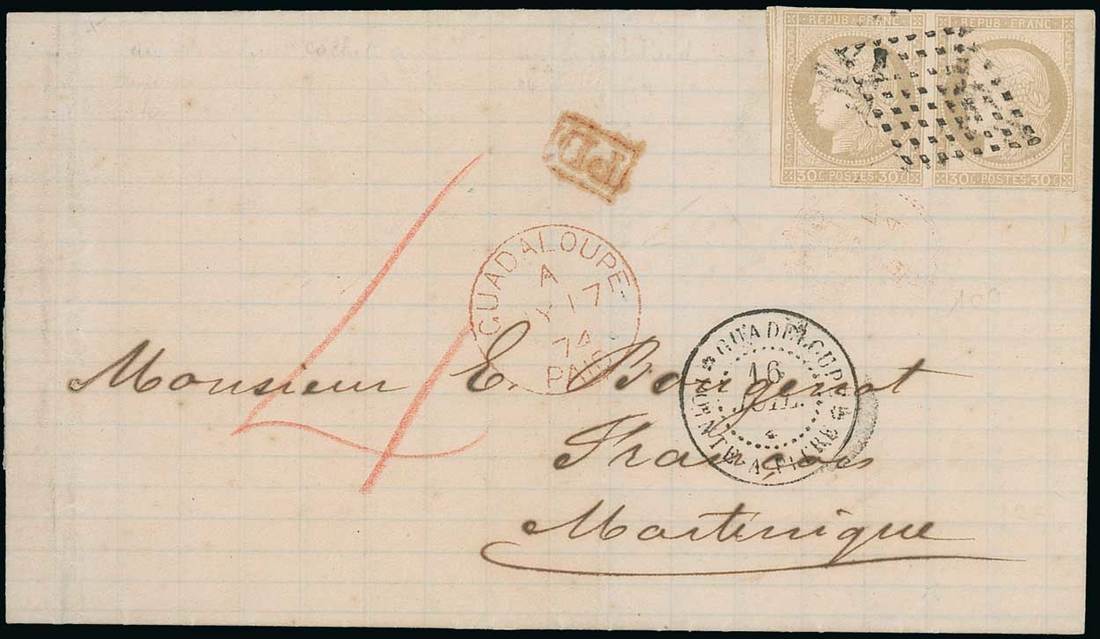 REPUB · FRANC · REPUB · FRANC ·
30 C · POSTES · 30 C · 30 C · POSTES · 30 C ·
PD
GUADALOUPE
A
17
74
PAID
4
GUADELOUPE
16
JUIL.
POINTE-A-PITRE
Monsieur E. Bougenot
François
Martinique